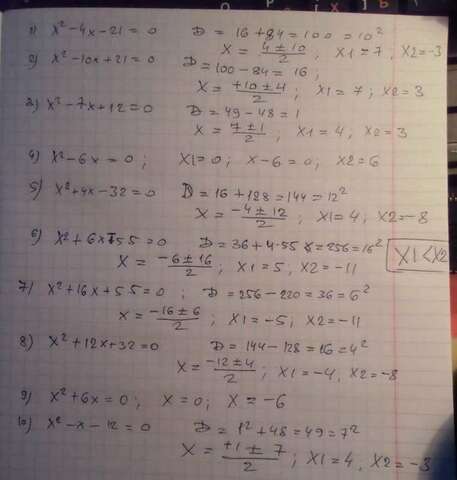 1) x²-4x-21=0 D = 16+84=100=10²
x = 4±10/2, x1=7, x2=-3
2) x²-10x+21=0 D=100-84=16;
x = +10±4/2; x1=7; x2=3
3) x²-7x+12=0 D=49-48=1
x = 7±1/2, x1=4; x2=3
4) x²-6x=0; x1=0; x-6=0; x2=6
5) x²+4x-32=0 D=16+128=144=12²
x = -4±12/2; x1=4; x2=-8
6) x²+6x-55=0 D=36+4·55=256=16²
x = -6±16/2; x1=5, x2=-11
x1<x2
7) x²+16x+55=0; D=256-220=36=6²
x = -16±6/2; x1=-5; x2=-11
8) x²+12x+32=0 D=144-128=16=4²
x = -12±4/2; x1=-4, x2=-8
9) x²+6x=0; x=0; x=-6
10) x²-x-12=0 D=1²+48=49=7²
x = +1±7/2; x1=4, x2=-3